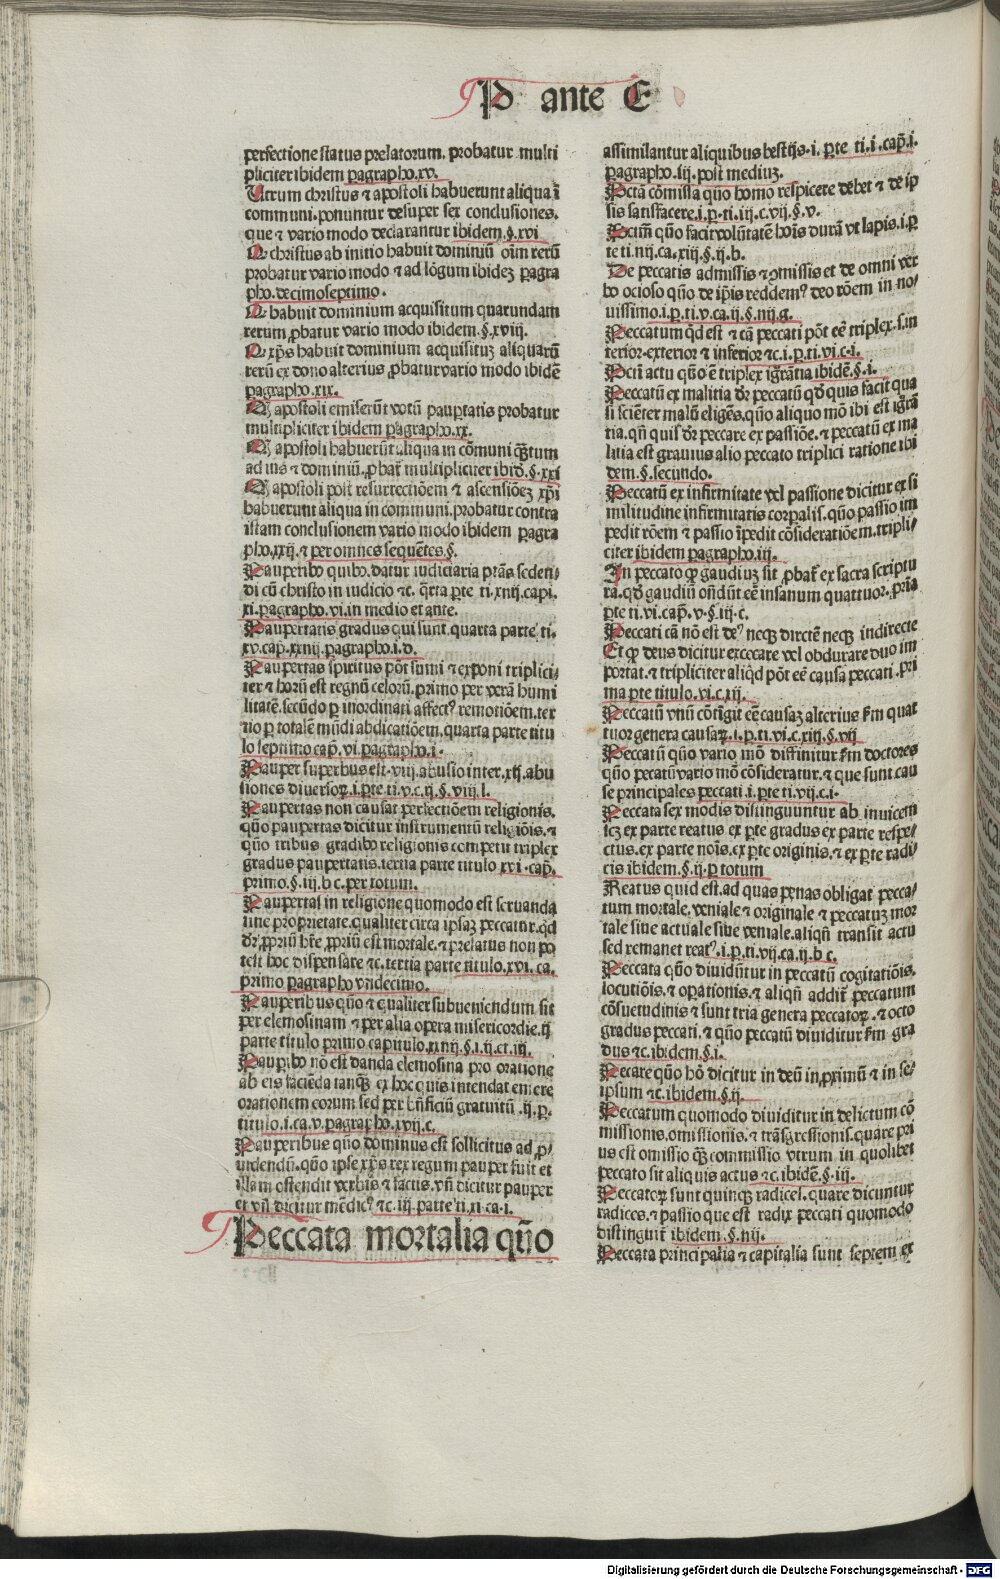 P ante E
perfectione status prelatorum. probatur multi
pliciter ibidem paragrapho.xv.
Utrum christus ⁊ apostoli habuerunt aliqua ī
communi. ponuntur desuper sex conclusiones.
que ⁊ vario modo declarantur ibidem.§.xvi
Q christus ab initio habuit dominiū oīm rerū
probatur vario modo ⁊ ad lōgum ibidez ꝑagra
pho.decimoseptimo.
Q habuit dominium acquisitum quarundam
rerum ꝓbatur vario modo ibidem.§.xviij.
Q xp̄s habuit dominium acquisituz aliquarū
rerū ex dono alterius ꝓbatur vario modo ibidē
ꝑagrapho.xix.
Q apostoli emiserūt votū pauꝑtatis probatur
multipliciter ibidem ꝑagrapho.xx.
Q apostoli habuerūt aliqua in cōmuni q̄ꝫtum
ad ius ⁊ dominiū ꝓbat᷑ multipliciter ibidē.§.xxi
Q apostoli post resurrectiōem ⁊ ascensiōeꝫ xp̄i
habuerunt aliqua in communi. probatur contra
istam conclusionem vario modo ibidem ꝑagra
pho.xxij.⁊ per omnes sequētes.§.
Pauperibꝰ quibꝰ datur iudiciaria ptās seden/
di cū christo in iudicio ⁊c. q̄rta ꝑte ti.xiiij capi.
xi.ꝑagrapho.vi.in medio et ante.
Paupertatis gradus qui sunt. quarta parte ti.
xv.cap̄.xxiij.ꝑagrapho.i.d.
Paupertas spiritus pōt sumi ⁊ exponi triplici/
ter ⁊ horū est regnū celorū. primo per verā humi
litatē. secūdo ꝑ inordinati affectꝰ remotiōem. ter
tio ꝑ totalē mūdi abdicatiōem. quarta parte titu
lo septimo cap̄.vi.ꝑagrapho.i.
Pauper superbus est.viij.abusio inter.xij.abu
siones diuersorꝫ.i.ꝑte.ti.v.c.ij.§.viij.l.
Paupertas non causat perfectiōem religionis.
quō paupertas dicitur instrumentū religiōis.⁊
quō tribus gradibꝰ religionis competit triplex
gradus paupertatis. tertia parte titulo xvi.cap̄.
primo.§.iij.b c.per totum.
Paupertas in religione quomodo est seruanda
sine proprietate. qualiter circa ipsaꝫ peccatur. qd
dr̄ ꝓpriū hr̄e ꝓpriū est mortale.⁊ prelatus non po
test hoc dispensare ⁊c. tertia parte titulo.xvi.ca.
primo ꝑagrapho vndecimo.
Pauperibus quō ⁊ qualiter subueniendum sit
per elemosinam ⁊ per alia opera misericordie.ij
parte titulo primo capitulo.xxiiij.§.i.ij.et.iij.
Pauꝑibꝰ nō est danda elemosina pro oratione
ab eis faciēda tanq̄ꝫ ex hoc quis intendat emere
orationem eorum sed per bn̄ficiū gratuitū.ij.ꝑ.
titulo.i.ca.v.ꝑagrapho.xvij.c.
Pauperibus quō dominus est sollicitus ad ꝓ/
uidendū. quō ipse xp̄s rex regum pauper fuit et
illam ostendit verbis ⁊ factis. vn̄ dicitur pauper
et vn̄ dicitur mēdicꝰ ⁊c.iij.parte ti.xi.ca.i.
Peccata mortalia quō
assimilantur aliquibus bestijs.i.ꝑte ti.i.cap̄.i.
ꝑagrapho.iij.post mediuꝫ.
Pctā cōmissa quō homo respicere debet ⁊ de ip
sis satisfacere.i.ꝑ.ti.iij.c.vij.§.v.
Pctm̄ quō facit volūtatē hoīs durā vt lapis.i.ꝑ
te ti.iiij.ca.xiij.§.ij.b.
De peccatis admissis ⁊ omissis et de omni ver
bo ocioso quō de ip̄is reddemꝰ deo rōem in no/
uissimo.i.ꝑ.ti.v.ca.ij.§.iiij.g.
Peccatum qd est ⁊ cā peccati pōt eē triplex.s.in
terior.exterior ⁊ inferior ⁊c.i.ꝑ.ti.vi.c.i.
Pctī actu quō ē triplex igrātia ibidē.§.i.
Peccatū ex malitia dr̄ peccatū qd quis facit qua
si sciēter malū eligēs. quō aliquo mō ibi est igrā
tia. qn̄ quis dr̄ peccare ex passiōe.⁊ peccatū ex ma
litia est grauius alio peccato triplici ratione ibi
dem.§.secundo.
Peccatū ex infirmitate vel passione dicitur ex si
militudine infirmitatis corꝑalis. quō passio im
pedit rōem ⁊ passio īpedit cōsideratiōem. tripli/
citer ibidem ꝑagrapho.iij.
In peccato ꝙ gaudiuꝫ sit ꝓbat᷑ ex sacra scriptu
ra. qd gaudiū ondūt eē insanum quattuor. prīa
ꝑte ti.vi.cap̄.v.§.iij.c.
Peccati cā nō est deꝰ neqꝫ directe neqꝫ indirecte
Et ꝙ deus dicitur excecare vel obdurare duo im
portat.⁊ tripliciter aliqd pōt eē causa peccati. pri
ma ꝑte titulo.vi.c.xij.
Peccatū vnū cōtigit eē causaꝫ alterius ẜm quat
tuor genera causarꝫ.i.ꝑ.ti.vi.c.xiij.§.vij
Peccatū quō vario mō diffinitur ẜm doctores
quō pecatū vario mō cōsideratur.⁊ que sunt cau
se principales peccati.i.ꝑte ti.vij.c.i.
Peccata sex modis distinguuntur ab inuicem
scꝫ ex parte reatus ex ꝑte gradus ex parte respe/
ctus. ex parte noīs. ex ꝑte originis.⁊ ex ꝑte radi/
cis ibidem.§.ij.ꝑ totum
Reatus quid est. ad quas penas obligat pecca/
tum mortale. veniale ⁊ originale ⁊ peccatuꝫ mor
tale siue actuale siue veniale. aliqn̄ transit actu
sed remanet reatꝰ.i.ꝑ.ti.vij.ca.ij.b c.
Peccata quō diuidūtur in peccatū cogitatiōis.
locutiōis.⁊ oꝑationis.⁊ aliqn̄ addit᷑ peccatum
cōsuetudinis ⁊ sunt tria genera peccatorꝫ.⁊ octo
gradus peccati.⁊ quō peccatū diuiditur ẜm gra
dus ⁊c.ibidem.§.i.
Pecare quō hō dicitur in deū in ꝓximū ⁊ in se/
ipsum ⁊c.ibidem.§.ij.
Peccatum quomodo diuiditur in delictum cō
missionis. omissiōis.⁊ trāsgressionis. quare pri
us est omissio q̄ꝫ commissio vtrum in quolibet
peccato sit aliquis actus ⁊c.ibidē.§.iij.
Peccatorꝫ sunt quinqꝫ radices. quare dicuntur
radices.⁊ passio que est radix peccati quomodo
distinguit᷑ ibidem.§.iiij.
Peccata principalia ⁊ capitalia sunt septem ex
Digitalisierung gefördert durch die Deutsche Forschungsgemeinschaft - DFG